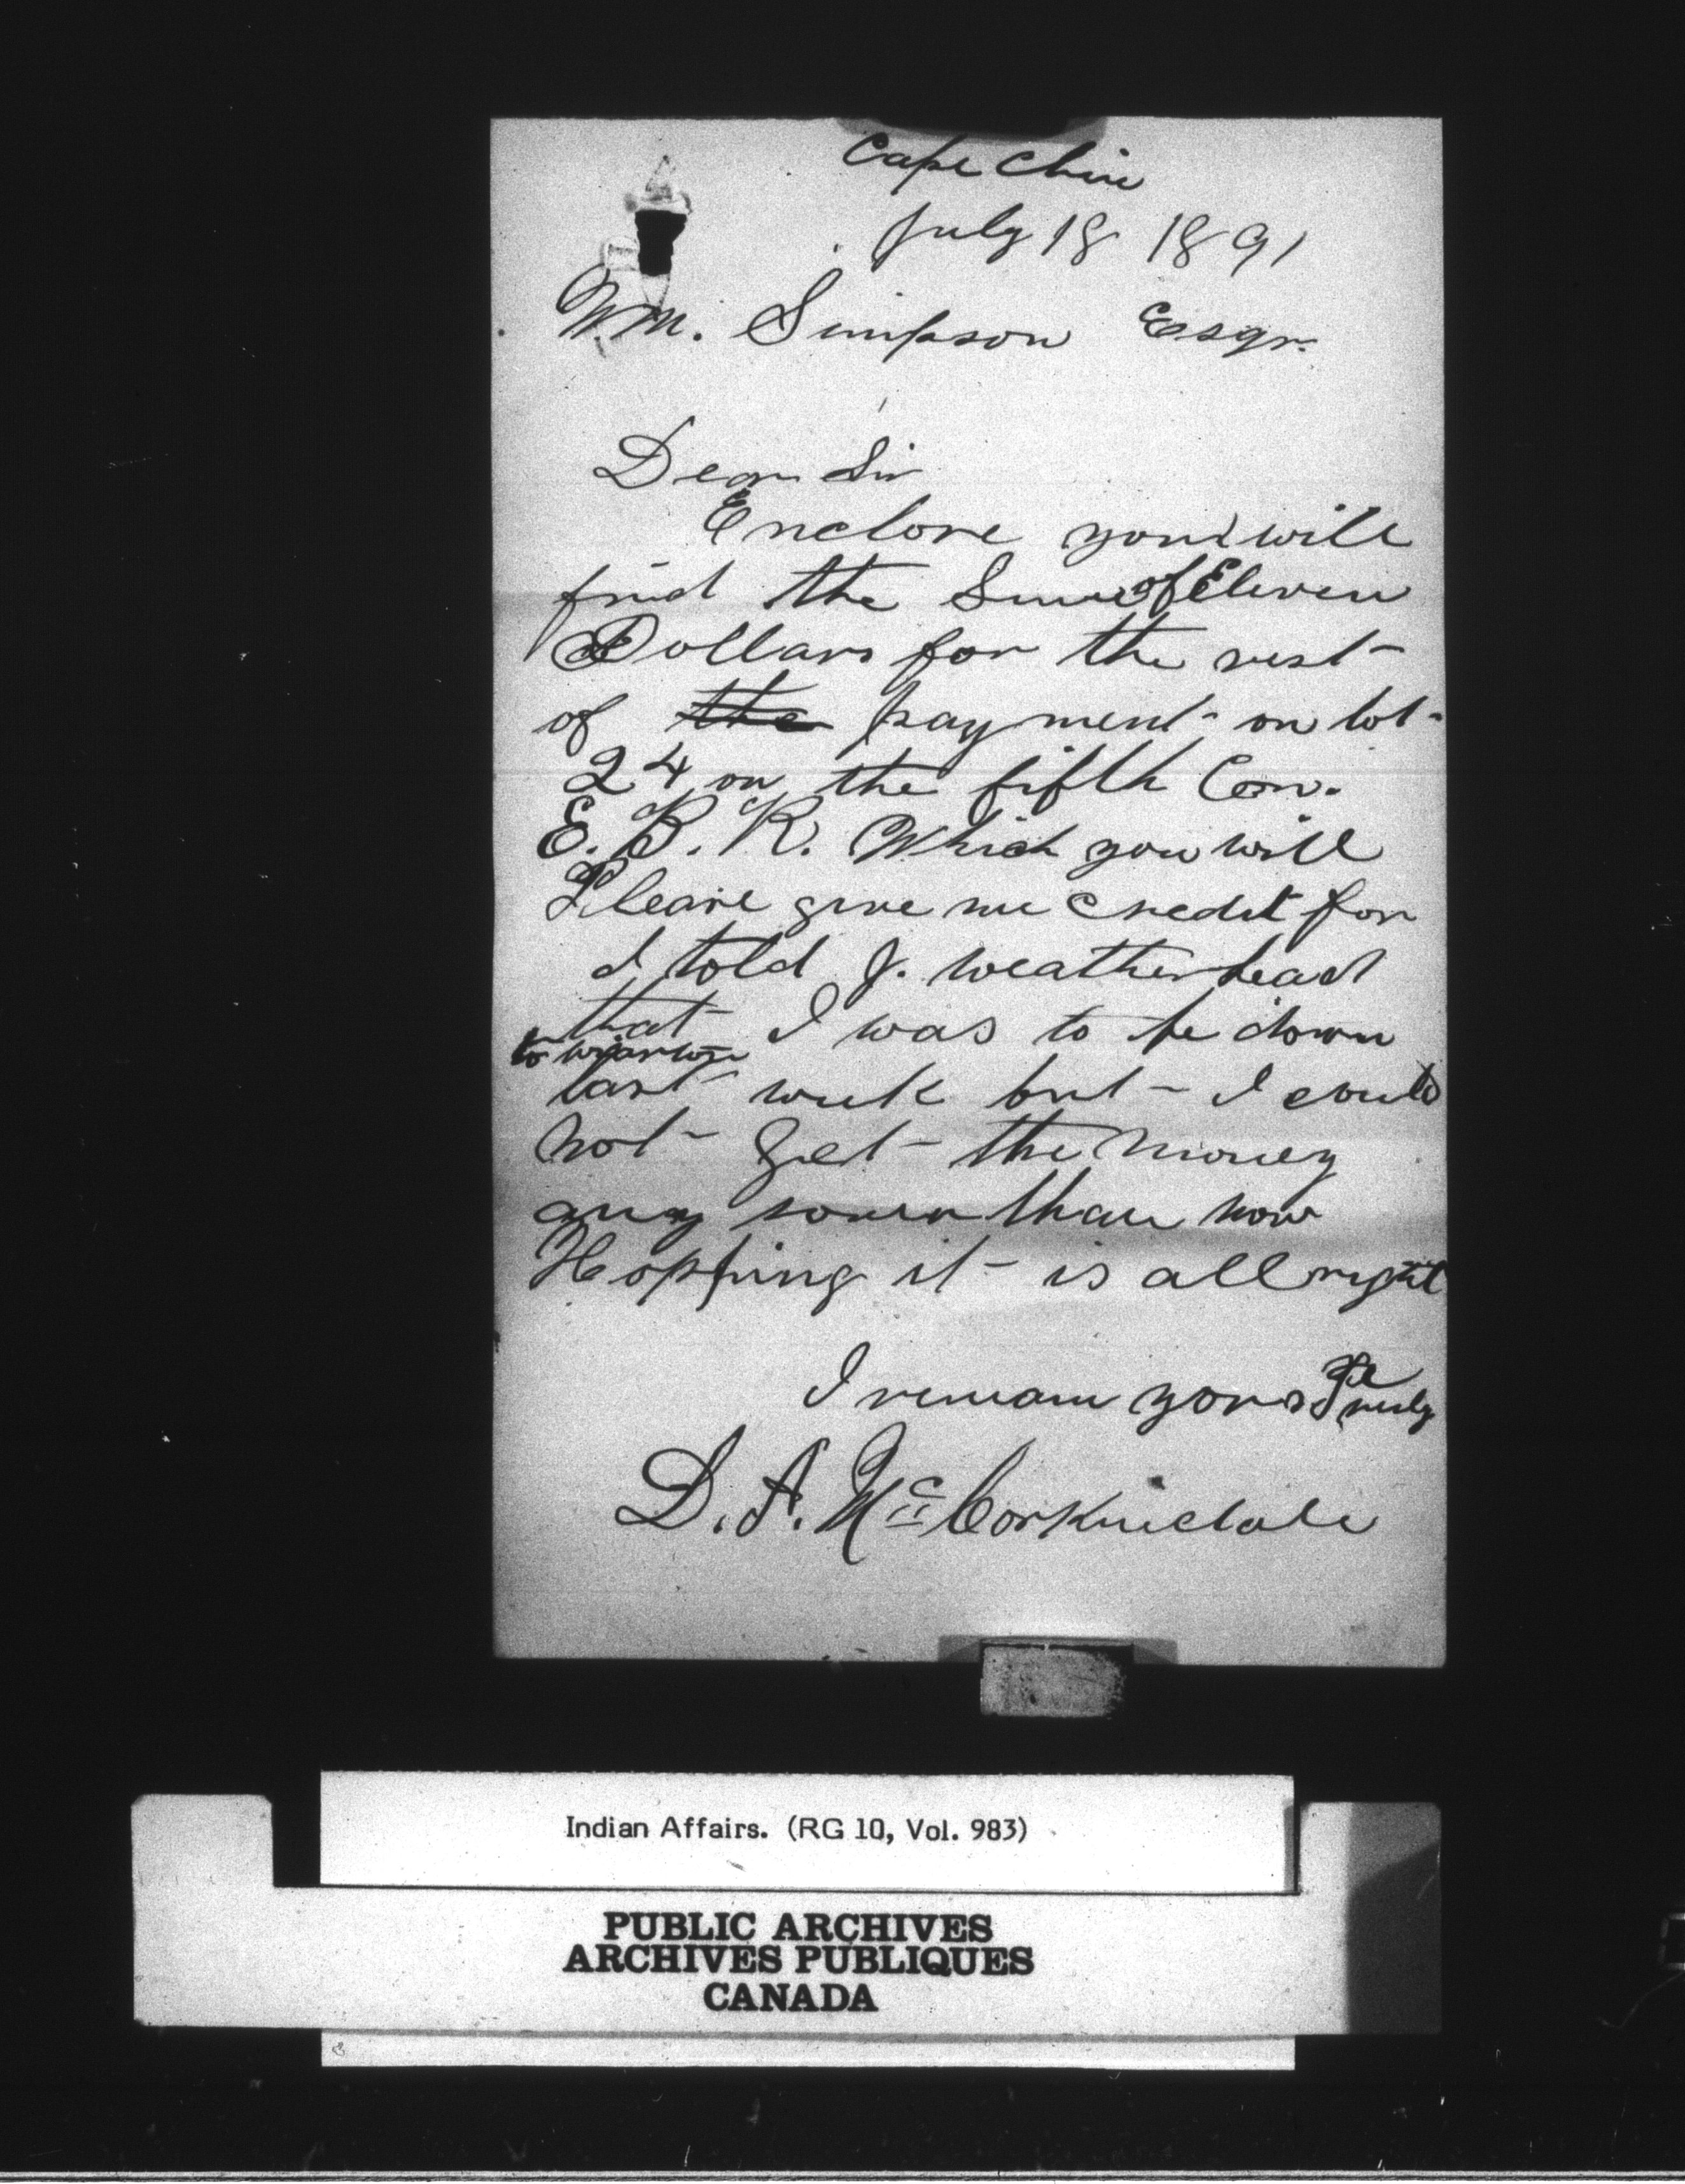 Cape Chin
July 18 1891
Wm. Simpson Esqr.
Dear Sir
Enclose you will
find the Sum of Eleven
Dollars for the rest
of the payment on lot
24 on the fifth Con.
E. B. R. Which you will
Please give me credit for
I told J. Weatherhead
that I was to be down
to wiarton
last week but I could
not get the money
any sooner than now
Hopping it is all right
I remain yors Truly
D. A. Mc Corkindale
Indian Affairs. (RG 10, Vol. 983)
PUBLIC ARCHIVES
ARCHIVES PUBLIQUES
CANADA